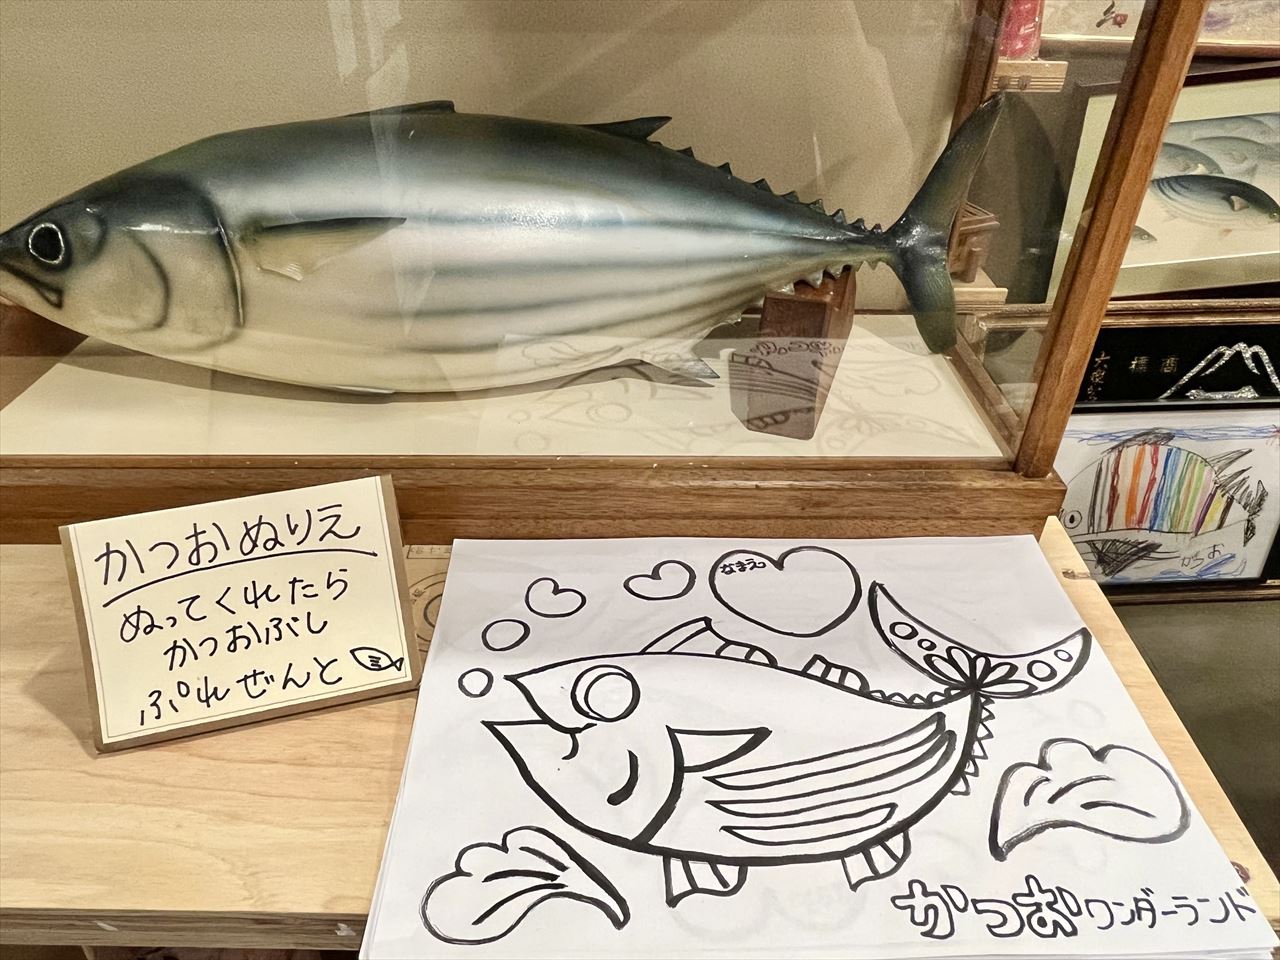 かつおぬりえ
ぬってくれたら
かつおぶし
ぷれぜんと
なまえ
かつおワンダーランド
かつお